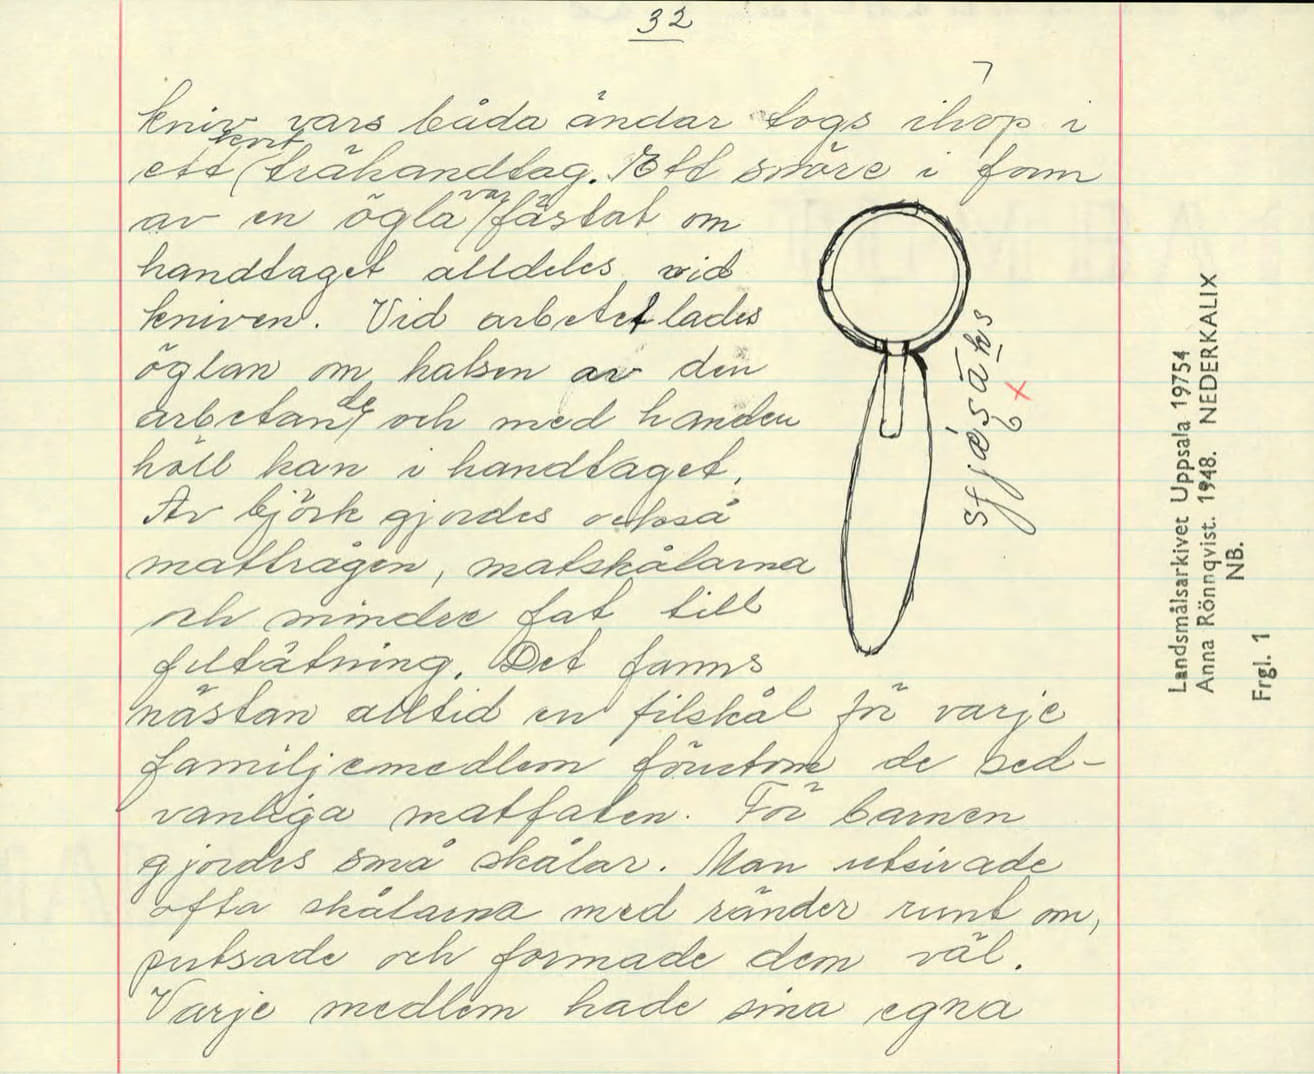 32
kniv vars båda ändar togs ihop i
ett kort trähandtag. Ett snöre i form
av en ögla var fästat om
handtaget alldeles vid
kniven. Vid arbetet lades
öglan om halsen av den
arbetande och med handen
höll han i handtaget.
Av björk gjordes också
mattrågen, matskålarna
och mindre fat till
filtätning. Det fanns
nästan alltid en filskål för varje
familjemedlem förutom de sed-
vanliga matfaten. För barnen
gjordes små skålar. Man utsirade
ofta skålarna med ränder runt om,
putsade och formade dem väl.
Varje medlem hade sina egna
Landsmålsarkivet Uppsala 19754
Anna Rönnqvist. 1948. NEDERKALIX
NB.
Frgl. 1